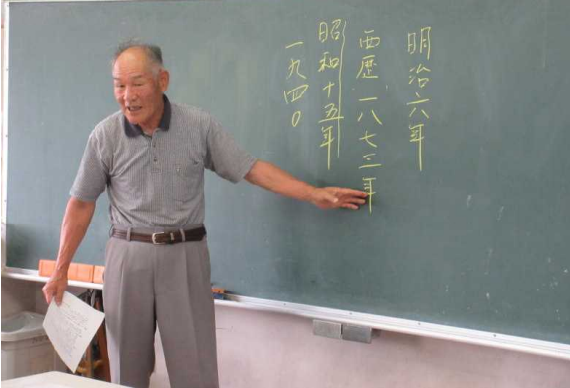 明治六年
西歴一八七三年
昭和十五年
一九四〇